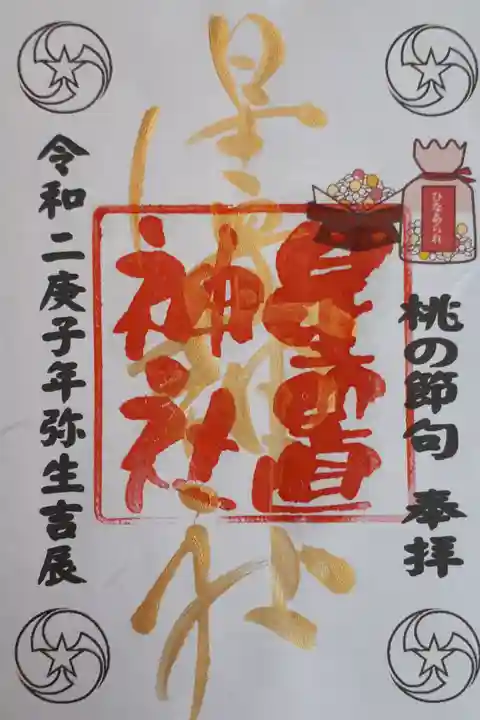 ひなあられ
桃の節句 奉拝
星置神社
星置
神社
令和二庚子年弥生吉辰